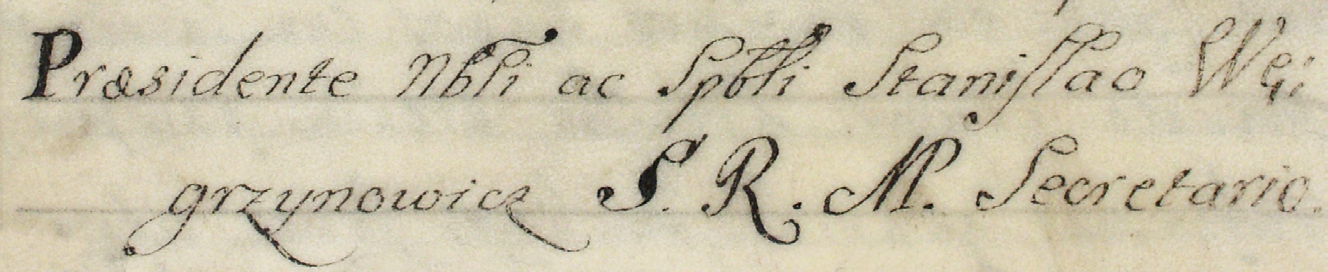 Præsidente Nbli ac Spbli Stanislao Węi
grzynowicz S. R. M. Secretario.